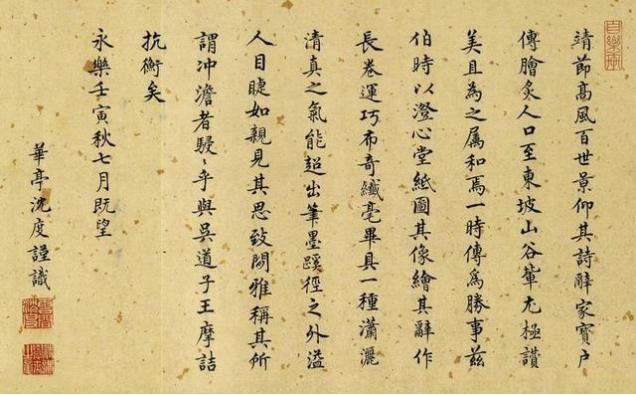 靖節高風百世景仰其詩辭家寶戶
傳膾炙人口至東坡山谷輩尤極讚
美且為之屬和焉一時傳為勝事茲
伯時以澄心堂紙圖其像繪其辭作
長卷運巧布奇纖毫畢具一種瀟灑
清真之氣能超出筆墨蹊徑之外溢
人目睫如親見其思致閒雅稱其所
謂冲澹者駸〻乎與吳道子王摩詰
抗衡矣
永樂壬寅秋七月既望
華亭沈度謹識